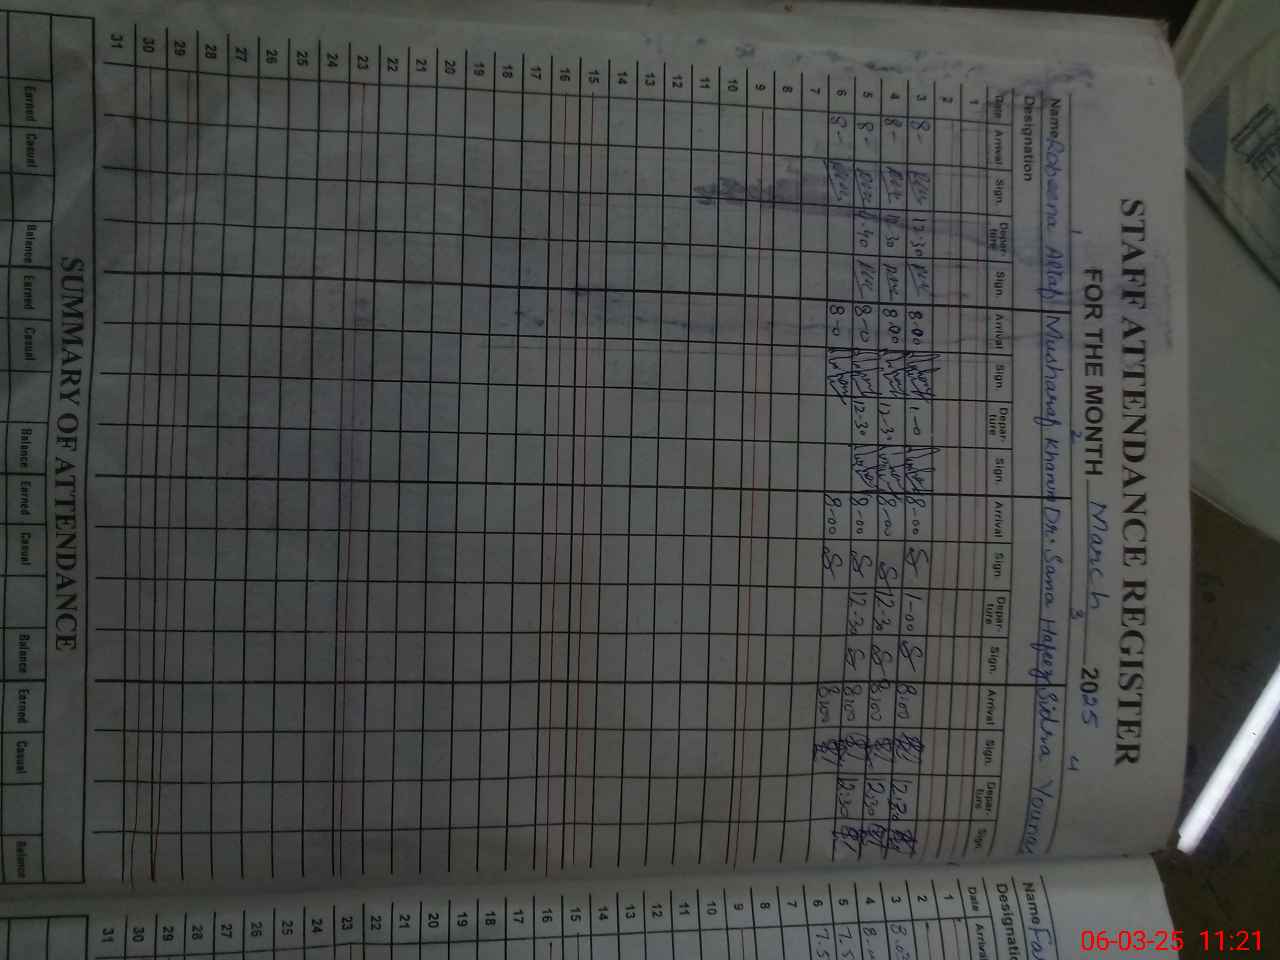 STAFF ATTENDANCE REGISTER
FOR THE MONTH March 2025
1 2 3 4
Name Robeena Altaf Musharaf Khanum Dr. Sana Hafeez Sidra Younas
Designation
Date Arrival Sign. Depar-ture Sign. Arrival Sign. Depar-ture Sign. Arrival Sign. Depar-ture Sign. Arrival Sign. Depar-ture Sign.
1
2
3 8- 12-30 8-00 1-0 8-00 1-00 8:00 12:30
4 8- 12-30 8-00 12-30 8-00 12-30 8:00 12:30
5 8- 8-0 12-30 8-00 12-30 8:00 12:30
6 8- 8-0 8-00 8:00
7
8
9
10
11
12
13
14
15
16
17
18
19
20
21
22
23
24
25
26
27
28
29
30
31
SUMMARY OF ATTENDANCE
Earned Casual Balance Earned Casual Balance Earned Casual Balance Earned Casual Balance
Name
Designati
Date Arrival
1
2
3
4
5 7.5
6 7.5
7
8
9
10
11
12
13
14
15
16
17
18
19
20
21
22
23
24
25
26
27
28
29
30
31
06-03-25 11:21